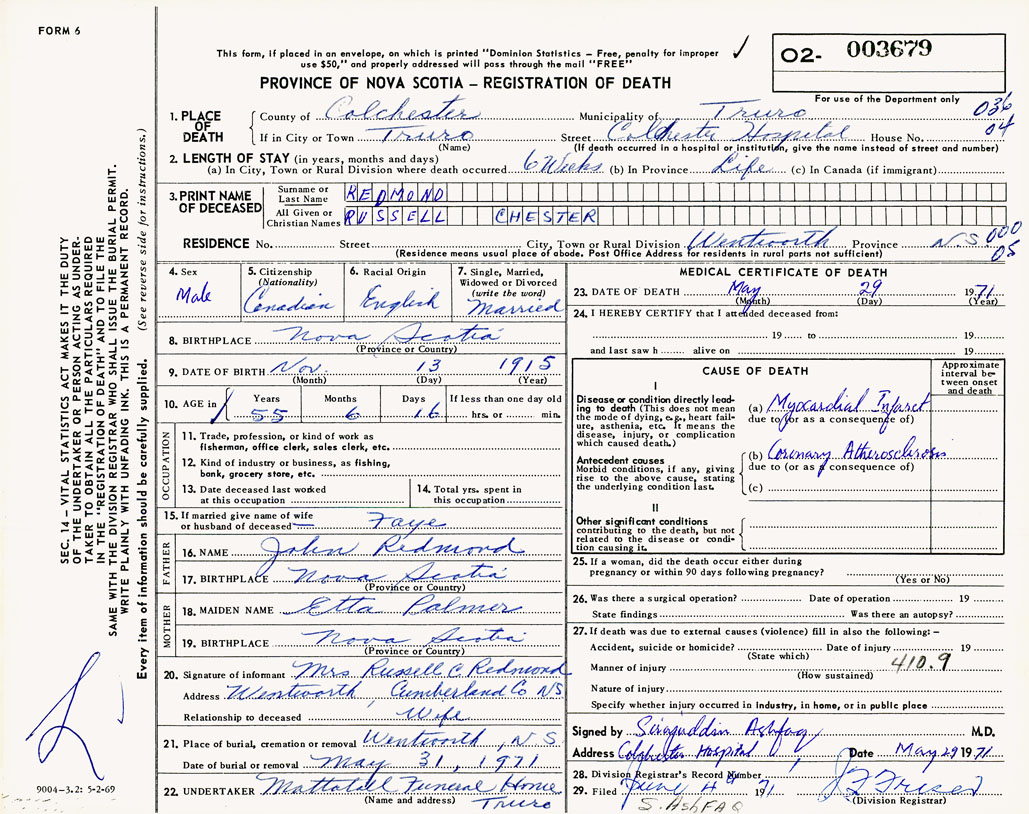 FORM 6
This form, if placed in an envelope, on which is printed "Dominion Statistics – Free, penalty for improper
use $50," and properly addressed will pass through the mail "FREE"
✓
O2- 003679
PROVINCE OF NOVA SCOTIA – REGISTRATION OF DEATH
For use of the Department only
1. PLACE OF DEATH
County of Colchester Municipality of Truro 036
If in City or Town Truro Street Colchester Hospital House No. 04
(Name) (If death occurred in a hospital or institution, give the name instead of street and number)
2. LENGTH OF STAY (in years, months and days)
(a) In City, Town or Rural Division where death occurred 6 Weeks (b) In Province Life (c) In Canada (if immigrant)
3. PRINT NAME OF DECEASED
Surname or Last Name REDMOND
All Given or Christian Names RUSSELL CHESTER
RESIDENCE No. Street City, Town or Rural Division Wentworth Province N.S 000
(Residence means usual place of abode. Post Office Address for residents in rural parts not sufficient) 05
4. Sex
Male
5. Citizenship
(Nationality)
Canadian
6. Racial Origin
English
7. Single, Married,
Widowed or Divorced
(write the word)
Married
8. BIRTHPLACE Nova Scotia
(Province or Country)
9. DATE OF BIRTH Nov. 13 1915
(Month) (Day) (Year)
10. AGE in
Years 55
Months 6
Days 16
If less than one day old
hrs. or min.
OCCUPATION
11. Trade, profession, or kind of work as
fisherman, office clerk, sales clerk, etc.
12. Kind of industry or business, as fishing,
bank, grocery store, etc.
13. Date deceased last worked
at this occupation
14. Total yrs. spent in
this occupation
15. If married give name of wife
or husband of deceased – Faye
FATHER
16. NAME John Redmond
17. BIRTHPLACE Nova Scotia
(Province or Country)
MOTHER
18. MAIDEN NAME Etta Palmer
19. BIRTHPLACE Nova Scotia
(Province or Country)
20. Signature of informant Mrs Russell C. Redmond
Address Wentworth, Cumberland Co NS
Relationship to deceased Wife
21. Place of burial, cremation or removal Wentworth, N S
Date of burial or removal May 31, 1971
22. UNDERTAKER Mattatall Funeral Home
(Name and address) Truro
MEDICAL CERTIFICATE OF DEATH
23. DATE OF DEATH May 29 1971
(Month) (Day) (Year)
24. I HEREBY CERTIFY that I attended deceased from:
19 to 19
and last saw h alive on 19
CAUSE OF DEATH
Approximate
interval be-
tween onset
and death
I
Disease or condition directly lead-
ing to death (This does not mean
the mode of dying, e.g., heart fail-
ure, asthenia, etc. It means the
disease, injury, or complication
which caused death.)
(a) Myocardial Infarct
due to (or as a consequence of)
Antecedent causes
Morbid conditions, if any, giving
rise to the above cause, stating
the underlying condition last.
(b) Coronary Atherosclerosis
due to (or as a consequence of)
(c)
II
Other significant conditions
contributing to the death, but not
related to the disease or condi-
tion causing it.
25. If a woman, did the death occur either during
pregnancy or within 90 days following pregnancy?
(Yes or No)
26. Was there a surgical operation? Date of operation 19
State findings Was there an autopsy?
27. If death was due to external causes (violence) fill in also the following: –
Accident, suicide or homicide? Date of injury 19
(State which)
Manner of injury 410.9
(How sustained)
Nature of injury
Specify whether injury occurred in industry, in home, or in public place
Signed by Sirajuddin Ashfaq M.D.
Address Colchester Hospital Date May 29 1971
28. Division Registrar's Record Number
29. Filed June 4 19 71
(Division Registrar)
S. ASHFAQ
SEC. 14 – VITAL STATISTICS ACT MAKES IT THE DUTY
OF THE UNDERTAKER OR PERSON ACTING AS UNDER-
TAKER TO OBTAIN ALL THE PARTICULARS REQUIRED
IN THE "REGISTRATION OF DEATH" AND TO FILE THE
SAME WITH THE DIVISION REGISTRAR WHO SHALL ISSUE THE BURIAL PERMIT.
WRITE PLAINLY WITH UNFADING INK. THIS IS A PERMANENT RECORD.
Every item of information should be carefully supplied. (See reverse side for instructions.)
9004–3.2: 5-2-69